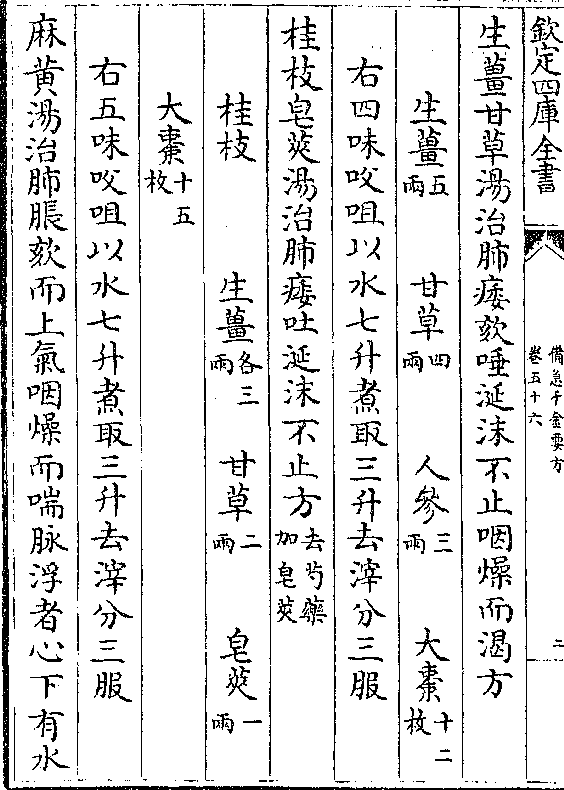 欽定四庫全書
備急千金要方
卷五十六
二
生薑甘草湯治肺痿欬唾涎沫不止咽燥而渴方
生薑五兩 甘草四兩 人參三兩 大棗十二枚
右四味㕮咀以水七升煮取三升去滓分三服
桂枝皂莢湯治肺痿吐涎沫不止方去芍藥加皂莢
桂枝 生薑各三兩 甘草二兩 皂莢一兩
大棗十五枚
右五味㕮咀以水七升煮取三升去滓分三服
麻黃湯治肺脹欬而上氣咽燥而喘脉浮者心下有水